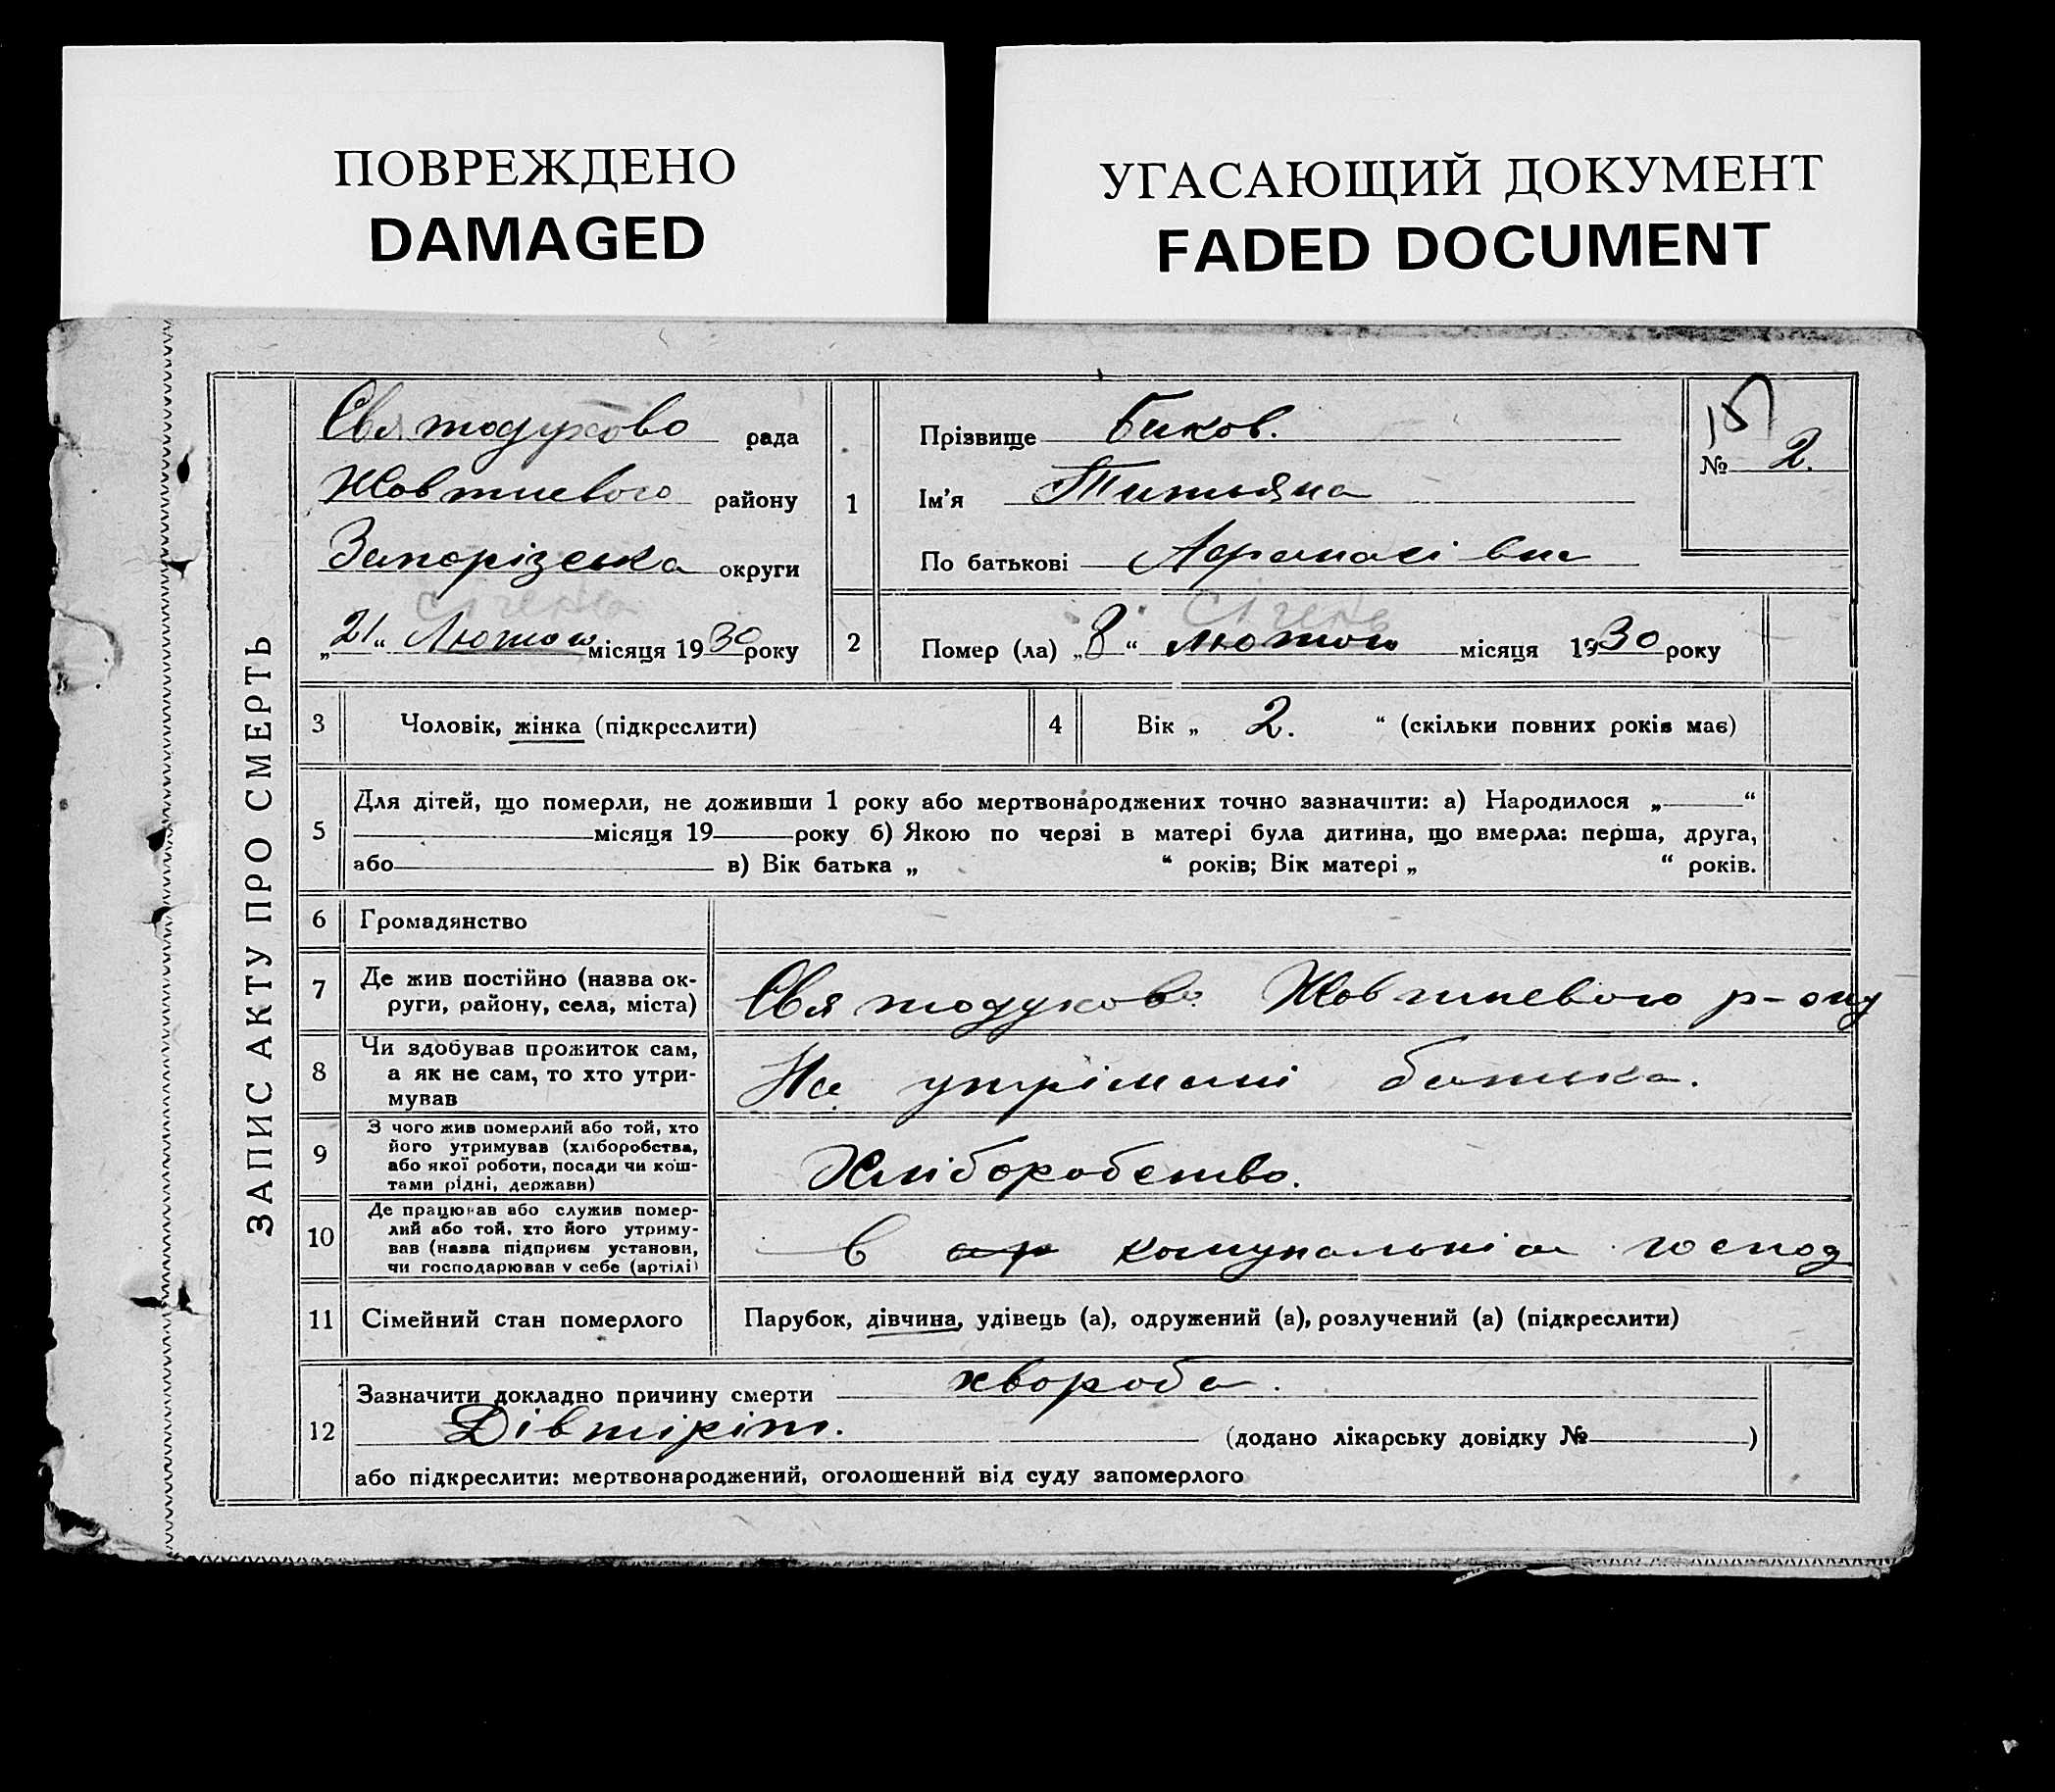 ПОВРЕЖДЕНО
DAMAGED
УГАСАЮЩИЙ ДОКУМЕНТ
FADED DOCUMENT
ЗАПИС АКТУ ПРО СМЕРТЬ
Святодухово рада
Жовтневого району
Запорізська округи
січень
„21“ Лютого місяця 1930 року
1
Прізвище Биков.
Ім'я Титьяна
По батькові Афанасівна
15
№ 2.
2
січень
Помер (ла) „8“ лютого місяця 1930 року
3 Чоловік, жінка (підкреслити)
4 Вік „ 2. “ (скільки повних років має)
5
Для дітей, що померли, не доживши 1 року або мертвонароджених точно зазначити: а) Народилося „ “
місяця 19 року б) Якою по черзі в матері була дитина, що вмерла: перша, друга,
або в) Вік батька „ “ років; Вік матері „ “ років.
6 Громадянство
7 Де жив постійно (назва ок-
руги, району, села, міста)
Святодухово Жовтневого р-ону
8 Чи здобував прожиток сам,
а як не сам, то хто утри-
мував
На утрімані батька.
9 З чого жив померлий або той, хто
його утримував (хліборобства,
або якої роботи, посади чи кош-
тами рідні, держави)
Хліборобство.
10 Де працював або служив помер-
лий або той, хто його утриму-
вав (назва підприєм установи,
чи господарював у себе (артілі)
в комунальнім господ
11 Сімейний стан померлого
Парубок, дівчина, удівець (а), одружений (а), розлучений (а) (підкреслити)
12
Зазначити докладно причину смерти хвороба.
Дівтіріт. (додано лікарську довідку № )
або підкреслити: мертвонароджений, оголошений від суду запомерлого